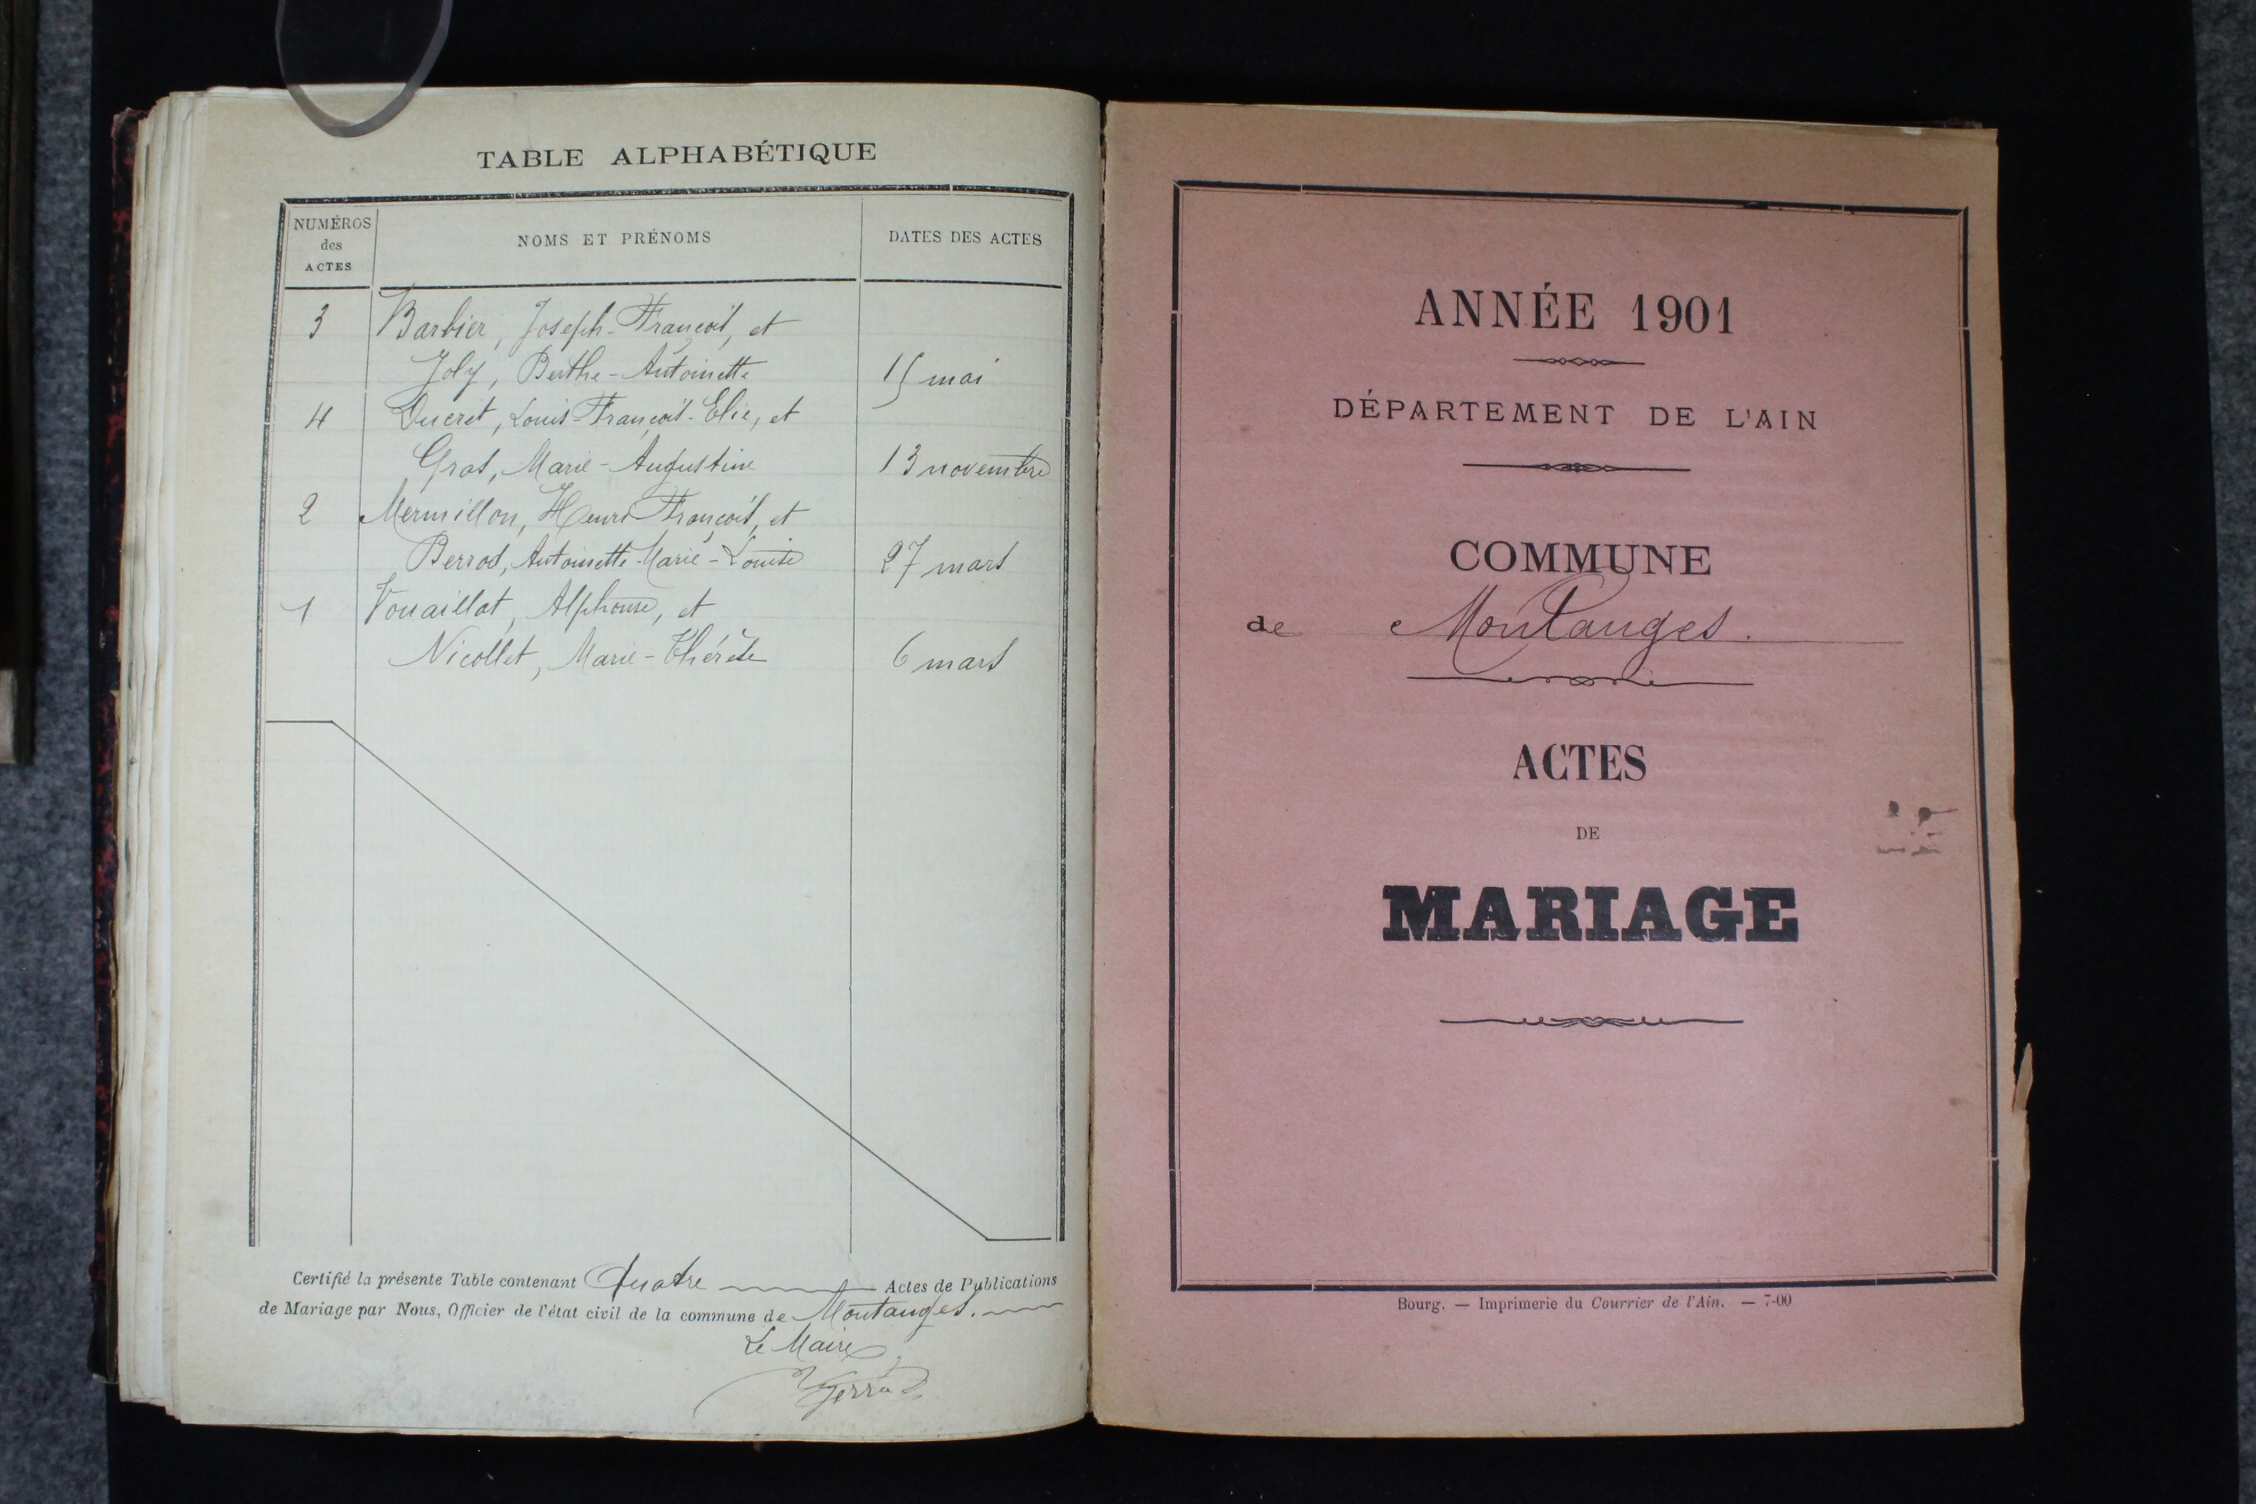 TABLE ALPHABÉTIQUE
NUMÉROS
des
ACTES
NOMS ET PRÉNOMS
DATES DES ACTES
3 Barbier, Joseph-François, et
Joly, Berthe-Antoinette 15 mai
4 Ducret, Louis-François-Elie, et
Gros, Marie-Augustine 13 novembre
2 Mermillon, Henri François, et
Berrod, Antoinette-Marie-Louise 27 mars
1 Vouaillat, Alphonse, et
Nicollet, Marie-Thérèse 6 mars
Certifié la présente Table contenant Quatre Actes de Publications
de Mariage par Nous, Officier de l'état civil de la commune de Montanges.
Le Maire
ANNÉE 1901
DÉPARTEMENT DE L'AIN
COMMUNE
de Montanges.
ACTES
DE
MARIAGE
Bourg. — Imprimerie du Courrier de l'Ain. — 7-00